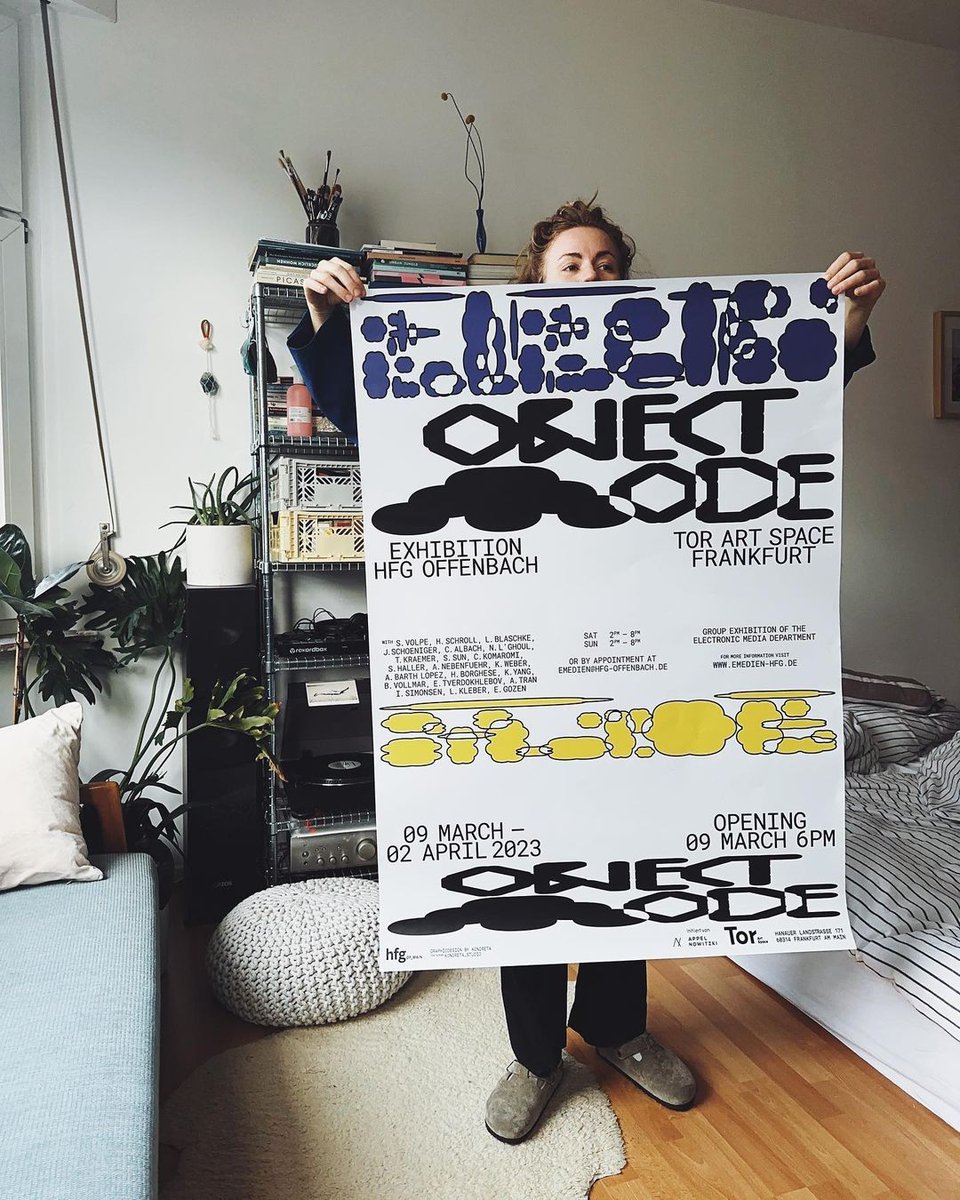 PICAS
ELECTRO
OBJECT
MODE
EXHIBITION
HFG OFFENBACH
TOR ART SPACE
FRANKFURT
WITH S. VOLPE, H. SCHROLL, L. BLASCHKE,
J. SCHOENIGER, C. ALBACH, N. L'GHOUL,
T. KRAEMER, S. SUN, C. KOMAROMI,
S. HALLER, A. NEBENFUEHR, K. WEBER,
A. BARTH LOPEZ, H. BORGHESE, K. YANG,
B. VOLLMAR, E. TVERDOKHLEBOV, A. TRAN
I. SIMONSEN, L. KLEBER, E. GOZEN
SAT 2PM – 8PM
SUN 2PM – 8PM
OR BY APPOINTMENT AT
EMEDIEN@HFG-OFFENBACH.DE
GROUP EXHIBITION OF THE
ELECTRONIC MEDIA DEPARTMENT
FOR MORE INFORMATION VISIT
WWW.EMEDIEN-HFG.DE
rekordbox
09 MARCH –
02 APRIL 2023
OPENING
09 MARCH 6PM
OBJECT
MODE
hfg
GRAPHICDESIGN BY KONDRETA
KONDRETA.STUDIO
Initiiert von
APPEL
NOWITZKI
Tor Art Space
HANAUER LANDSTRASSE 171
60314 FRANKFURT AM MAIN